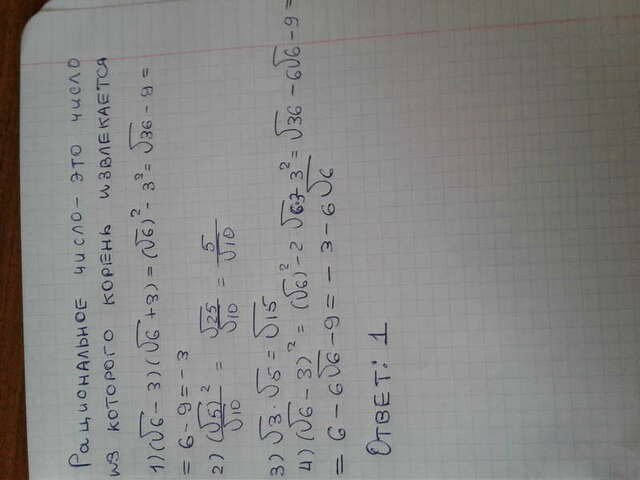 Рациональное число - это число
из которого корень извлекается
1) (√6 - 3) (√6 + 3) = (√6)² - 3² = √36 - 9 =
= 6 - 9 = - 3
2) (√5)²/√10 = √25/√10 = 5/√10
3) √3 · √5 = √15
4) (√6 - 3)² = (√6)² - 2 √6·3 - 3² = √36 - 6√6 - 9 =
= 6 - 6√6 - 9 = - 3 - 6√6
Ответ: 1